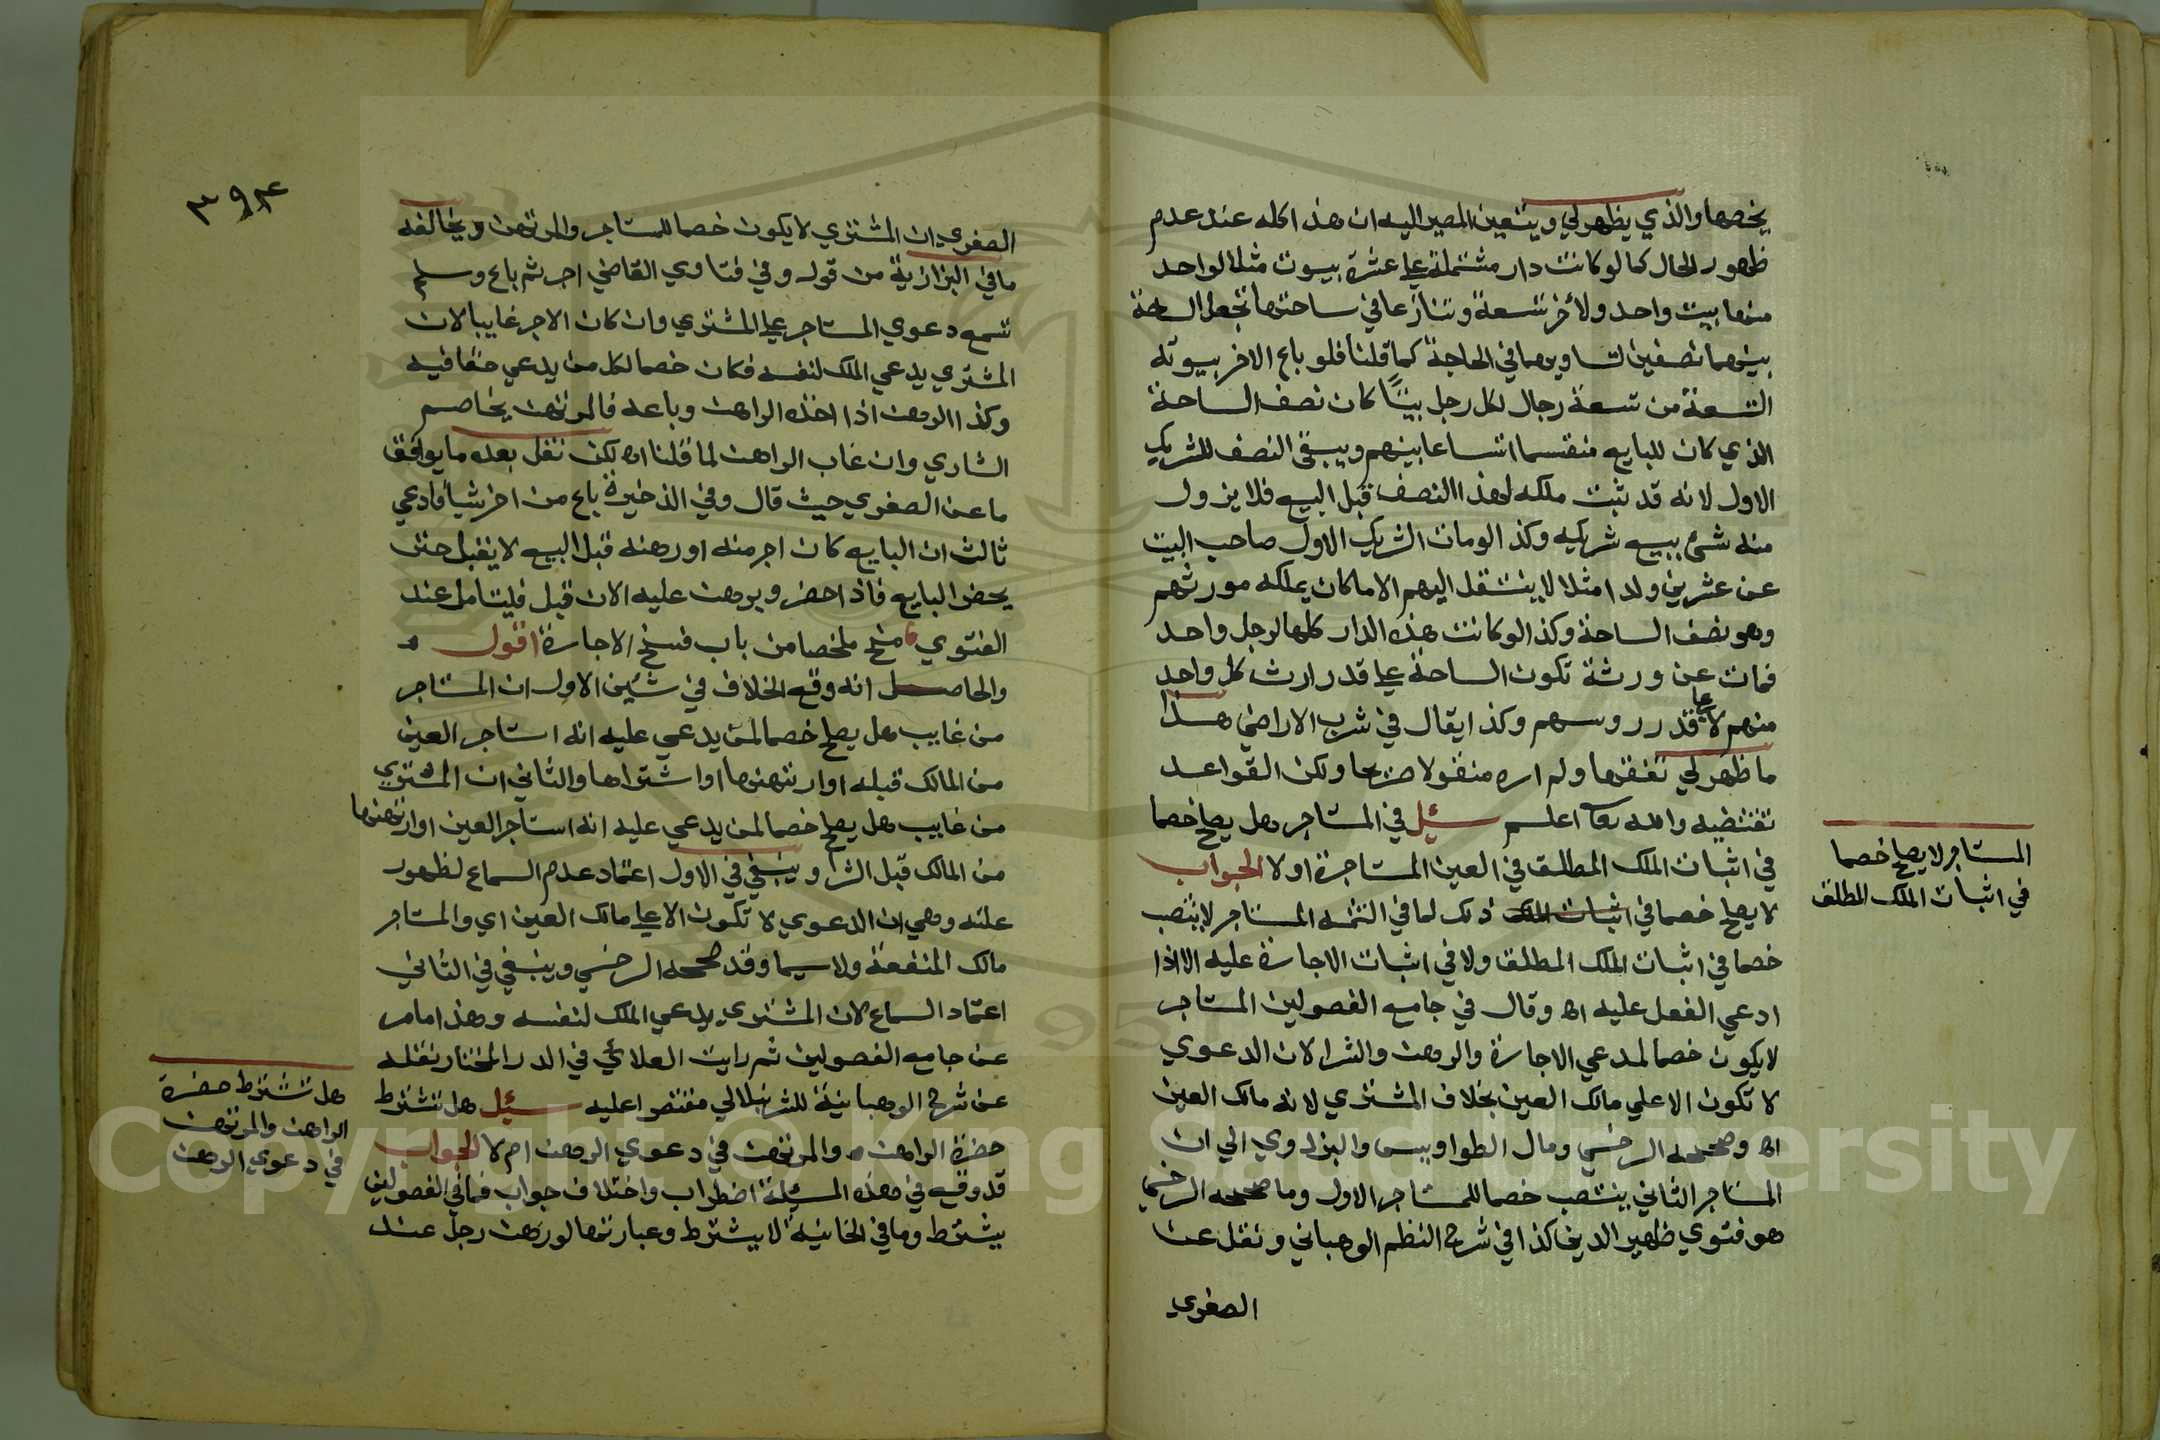 يخصها والذي يظهر لي ويتعين المصير اليه ان هذا كله عند عدم
ظهور الحال كما لو كانت دار مشتملة على عشرة بيوت مثلا لواحد
منها بيت واحد ولأخر تسعة وتنازعا في ساحتها تجعل الساحة
بينهما نصفين لتساويهما في الحاجة كما قلنا فلو باع الاخر بيوته
التسعة من تسعة رجال لكل رجل بيتًا كان نصف الساحة
الذي كان للبايع منقسما اتساعا بينهم ويبقى النصف للشريك
الاول لانه قد ثبت ملكه لهذا النصف قبل البيع فلا يزول
منه شئ ببيع شريكه وكذا لو مات الشريك الاول صاحب البيت
عن عشرين ولدا مثلا لا ينتقل اليهم الا ما كان يملكه مورثهم
وهو نصف الساحة وكذا لو كانت هذه الدار كلها لرجل واحد
فمات عن ورثة تكون الساحة على قدر ارث كل واحد
منهم لا على قدر روسهم وكذا يقال في شرب الاراضي هذا
ما ظهر لي تفقها ولم اره منقولا صريحا ولكن القواعد
تقتضيه والله تعا اعلم سئل في المستاجر هل يصلح خصما
في اثبات الملك المطلق في العين المستاجرة اولا الجواب
لا يصلح خصما في اثبات الملك ذلك لما في التتمه المستاجر لا ينتصب
خصما في اثبات الملك المطلق ولا في اثبات الاجارة عليه الا اذا
ادعي الفعل عليه اه وقال في جامع الفصولين المستاجر
لا يكون خصما لمدعي الاجارة والرهن والشرا لان الدعوي
لا تكون الا علي مالك العين بخلاف المشتري لانه مالك العين
اه وصححه السرخسي ومال الطواويسي والبزدوي الي ان
المستاجر الثاني ينتصب خصما للمستاجر الاول وما صححه السرخسي
هو فتوي ظهير الدين كذا في شرح النظم الوهباني ونقل عن
الصغري
المستاجر لا يصلح خصما
في اثبات الملك المطلق
٣٩٤
الصغري ان المشتري لا يكون خصما للمستاجر والمرتهن ويخالفه
ما في البزازية من قوله وفي فتاوي القاضي اجر ثم باع وسلم
تسمع دعوي المستاجر على المشتري وان كان الاجر غايبا لان
المشتري يدعي الملك لنفسه فكان خصما لكل من يدعي حقا فيه
وكذا الرهن اذا اخذه الراهن وباعه فالمرتهن يخاصم
الشاري وان غاب الراهن لما قلنا اه لكن نقل بعده ما يوافق
ما عن الصغري حيث قال وفي الذخيرة باع من اخر شيأ فادعي
ثالث ان البايع كان اجر منه او رهنه قبل البيع لا يقبل حتى
يحضر البايع فاذا حضر وبرهن عليه الان قبل فليتامل عند
الفتوي منح ملخصا من باب فسخ الاجارة اقول
والحاصل انه وقع الخلاف في شئين الاول ان المستاجر
من غايب هل يصلح خصما لمن يدعي عليه انه استاجر العين
من المالك قبله او ارتهنها او اشتراها والثاني ان المشتري
من غايب هل يصلح خصما لمن يدعي عليه انه استاجر العين او ارتهنها
من المالك قبل الشرا وينبغي في الاول اعتماد عدم السماع لظهور
علته وهي ان الدعوي لا تكون الا على مالك العين اي والمستاجر
مالك المنفعة ولا سيما وقد صححه السرخسي وينبغي في الثاني
اعتماد السماع لان المشتري يدعي الملك لنفسه وهذا ما مر
عن جامع الفصولين ثم رايت العلائي في الدر المختار نقله
عن شرح الوهبانية للشرنبلالي مقتصرا عليه سئل هل تشترط
حضرة الراهن والمرتهن في دعوي الرهن ام لا الجواب
قد وقع في هذه المسئلة اضطراب واختلاف جواب فما في الفصولين
يشترط وما في الخانية لا يشترط وعبارتها لو رهن رجل عند
هل تشترط حضرة
الراهن والمرتهن
في دعوي الرهن
Copyright © King Saud University